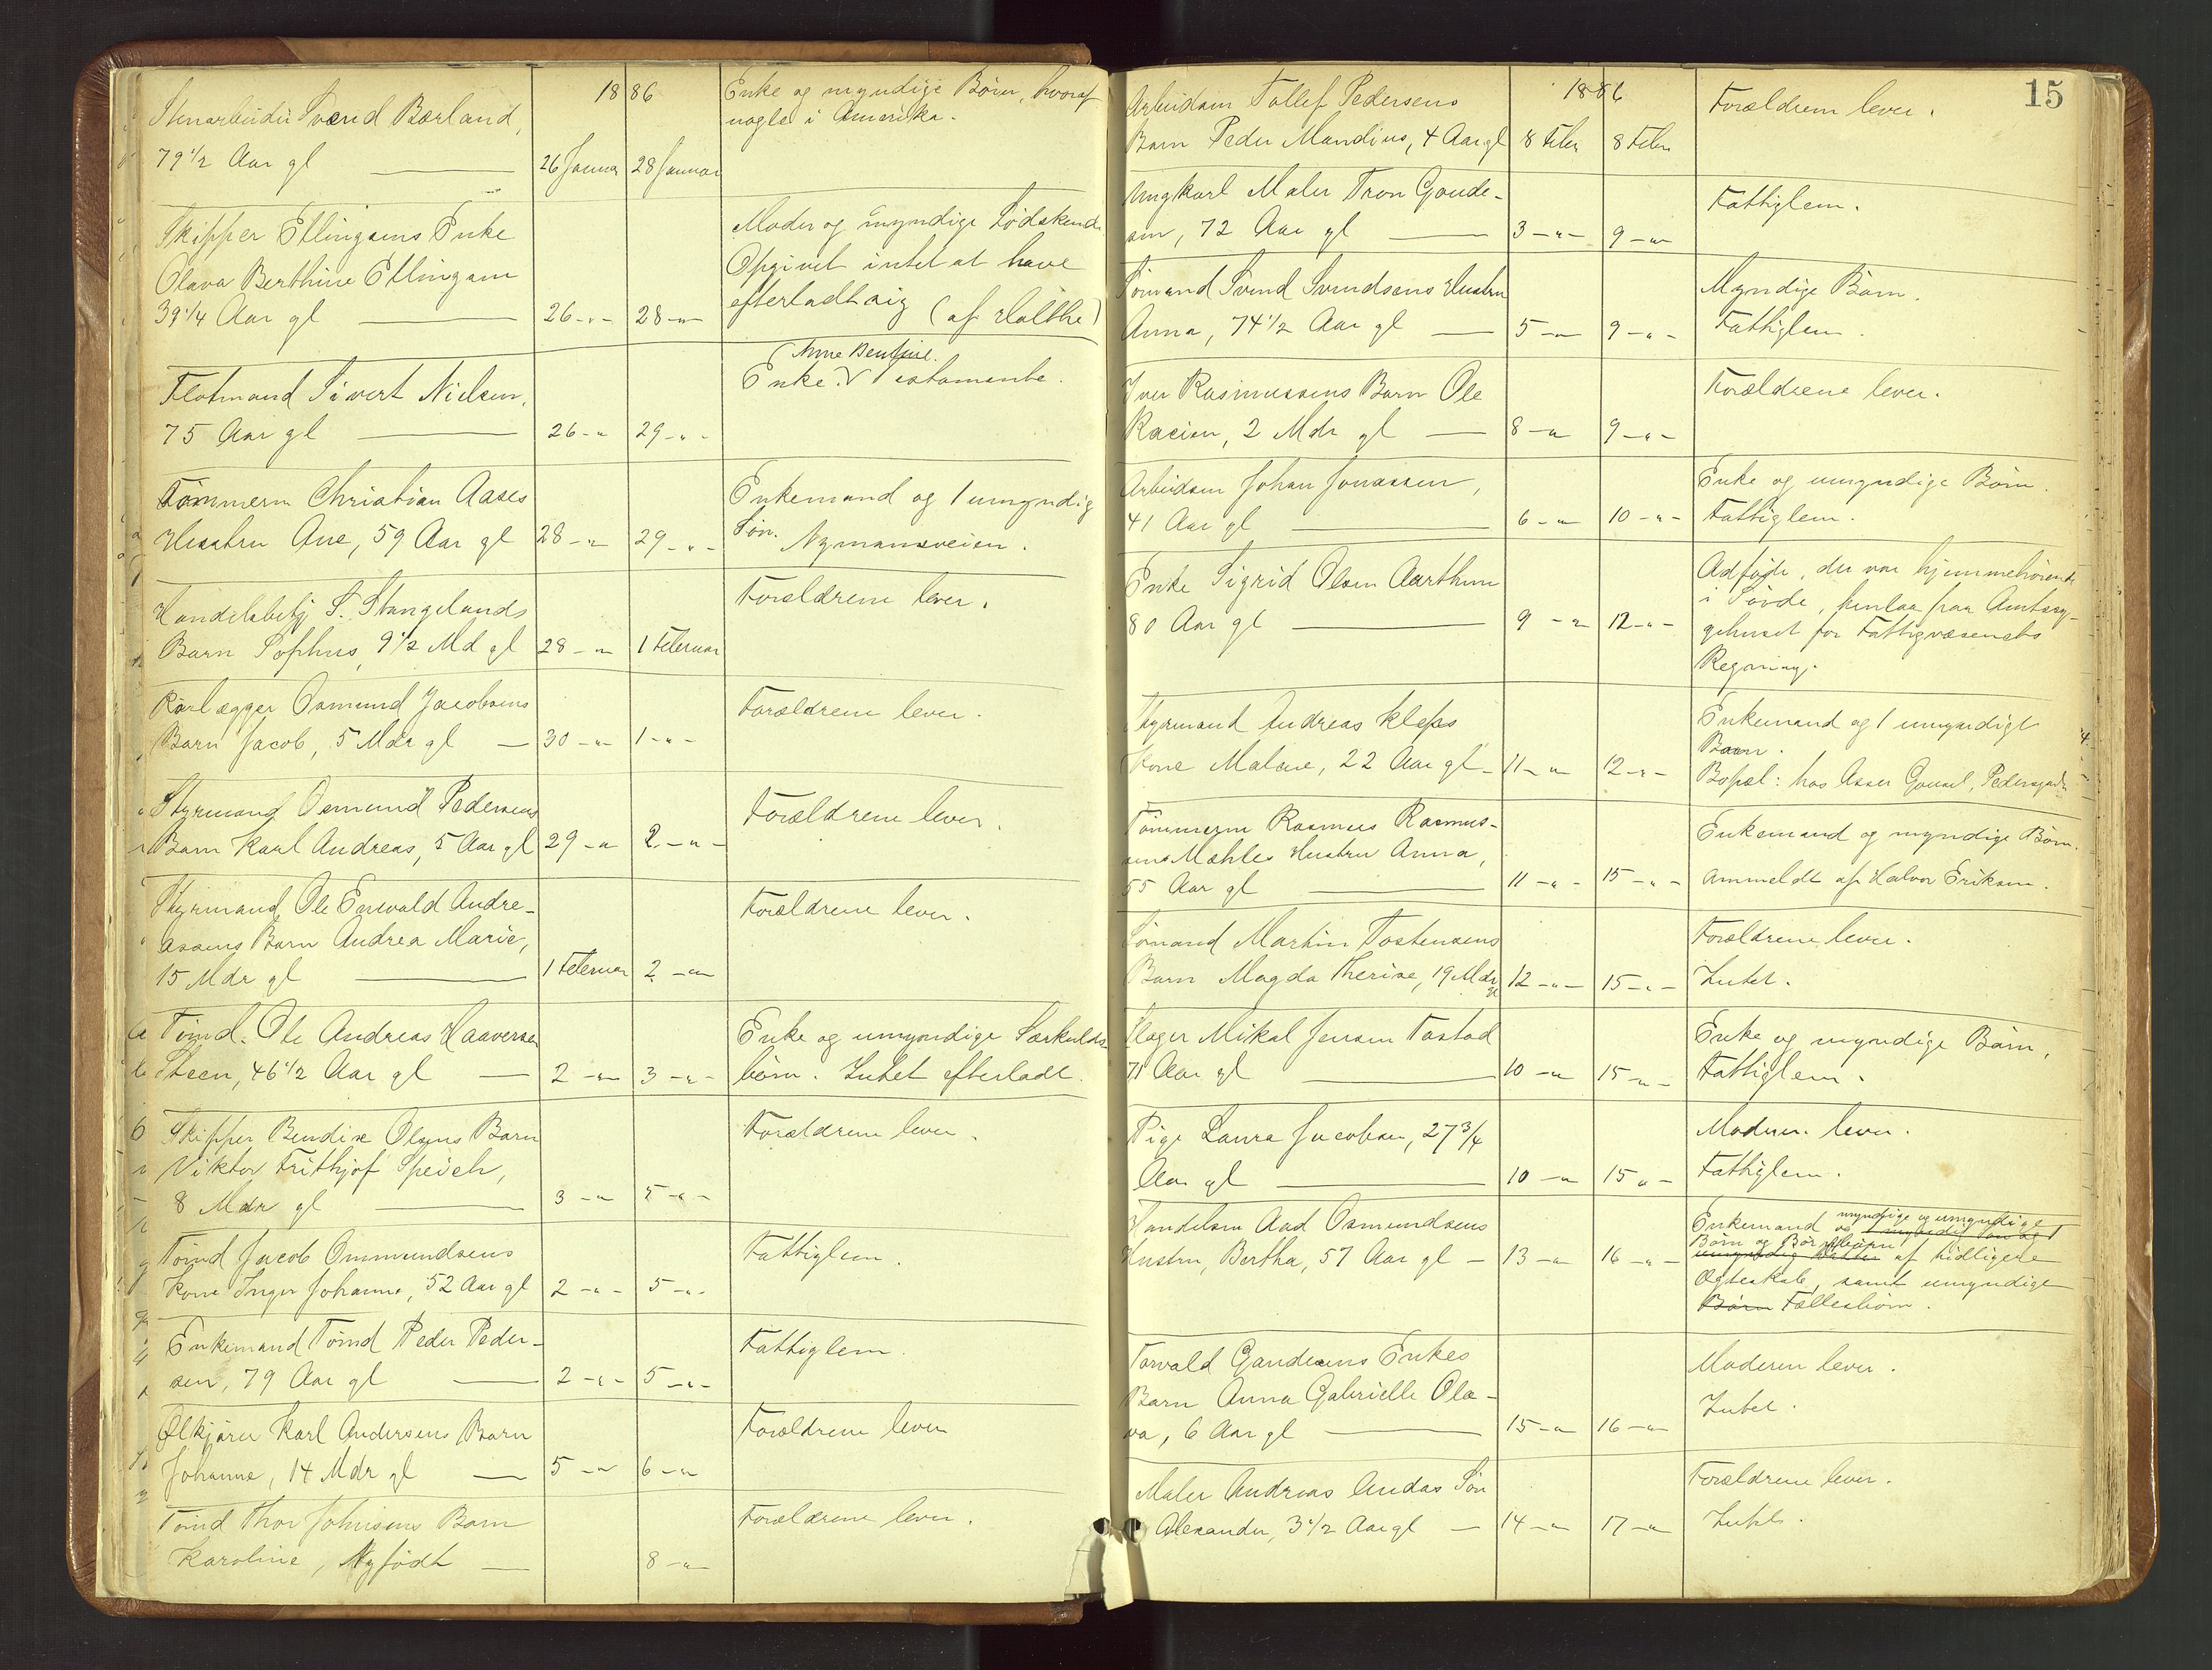 1886
Stenarbeider Svend Børland,
79 1/2 Aar gl — 26 Januar 28 Januar
Enke og myndige Børn, hvoraf
nogle i Amerika.
Skipper Ellingsens Enke
Olava Berthine Ellingsen
39 1/4 Aar gl — 26 -"- 28 -"-
Moder og myndige Sødskende
Opgivet intet at have
efterladt sig (af Holthe)
Flotmand Sivert Nielsen,
75 Aar gl — 26 -"- 29 -"-
Enke. Testamente.
Tømmerm Christian Aases
Hustru Ane, 59 Aar gl 28 -"- 29 -"-
Enkemand og 1 umyndig
Søn. Nymansveien.
Handelsbetj S. Stangelands
Barn Sophus, 9 1/2 Md gl 28 -"- 1 Februar
Forældrene lever.
Rørlægger Osmund Jacobsens
Barn Jacob, 5 Mdr gl — 30 -"- 1 -"-
Forældrene lever.
Styrmand Osmund Pedersens
Barn Karl Andreas, 5 Aar gl 29 -"- 2 -"-
Forældrene lever.
Styrmand Ole Enevald Andre-
asens Barn Andrea Marie,
15 Mdr gl — 1 Februar 2 -"-
Forældrene lever.
Tømd. Ole Andreas Haaversen
Steen, 46 1/2 Aar gl — 2 -"- 3 -"-
Enke og umyndige Særkulds-
børn. Intet efterladt.
Skipper Bendix Olsens Barn
Viktor Frithjof
8 Mdr gl — 3 -"- 5 -"-
Forældrene lever.
Tømd Jacob Ommundsens
Kone Inger Johanne, 52 Aar gl 2 -"- 5 -"-
Fattiglem.
Enkemand Tømd Peder Peder-
sen, 79 Aar gl — 2 -"- 5 -"-
Fattiglem.
Ølkjører Karl Andersens Barn
Johanne, 14 Mdr gl — 5 -"- 6 -"-
Forældrene lever
Tømd Thor Johnsens Barn
Karoline, Nyfødt — 8 -"-
Forældrene lever.
15
1886
Arbeidsm Tollef Pedersens
Barn Peder Mandius, 4 Aar gl 8 Febr 8 Febr
Forældrene lever.
Ungkarl Maler Tron Gaude-
sen, 72 Aar gl — 3 -"- 9 -"-
Fattiglem.
Sømand Svend Svendsens Hustru
Anna, 74 1/2 Aar gl — 5 -"- 9 -"-
Myndige Børn.
Fattiglem
Iver Rasmussens Barn Ole
2 Mdr gl — 8 -"- 9 -"-
Forældrene lever.
Arbeidsm Johan Jonassen,
41 Aar gl — 6 -"- 10 -"-
Enke og umyndige Børn.
Fattiglem.
Enke Sigrid Olsen Aarthun
80 Aar gl — 9 -"- 12 -"-
Afdøde, der var hjemmehørende
i Søvde, henlaa paa Amtssy-
gehuset for Fattigvæsenets
Regning.
Styrmand Andreas Kleppes
Kone Malene, 22 Aar gl - 11 -"- 12 -"-
Enkemand og 1 umyndigt
Barn.
Bopæl: hos Asser Gausel, Pedersgade
Tømmerm Rasmus Rasmus-
sens Mæhles Hustru Anna,
55 Aar gl — 11 -"- 15 -"-
Enkemand og myndige Børn.
Anmeldt af Halvor Eriksen.
Sømand Martin Tostensens
Barn Magda Therise, 19 Mdr gl 12 -"- 15 -"-
Forældrene lever.
Intet.
Slager Mikal Jensen Tastad
71 Aar gl — 10 -"- 15 -"-
Enke og myndige Børn,
Fattiglem.
Pige Laura Jacobsen, 27 3/4
Aar gl — 10 -"- 15 -"-
Moderen lever.
Fattiglem.
Handelsm Aad Osmundsens
Hustru, Bertha, 57 Aar gl — 13 -"- 16 -"-
Enkemand og myndige og umyndige
Børn og Børnebørn af tidligere
Ægteskab, samt umyndige
Børn Fællesbørn.
Torvald Gandersens Enkes
Barn Anna Gabrielle Ola-
va, 6 Aar gl — 15 -"- 16 -"-
Moderen lever.
Intet.
Maler Andreas Andas Søn
Alexander, 3 1/2 Aar gl — 14 -"- 17 -"-
Forældrene lever.
Intet.